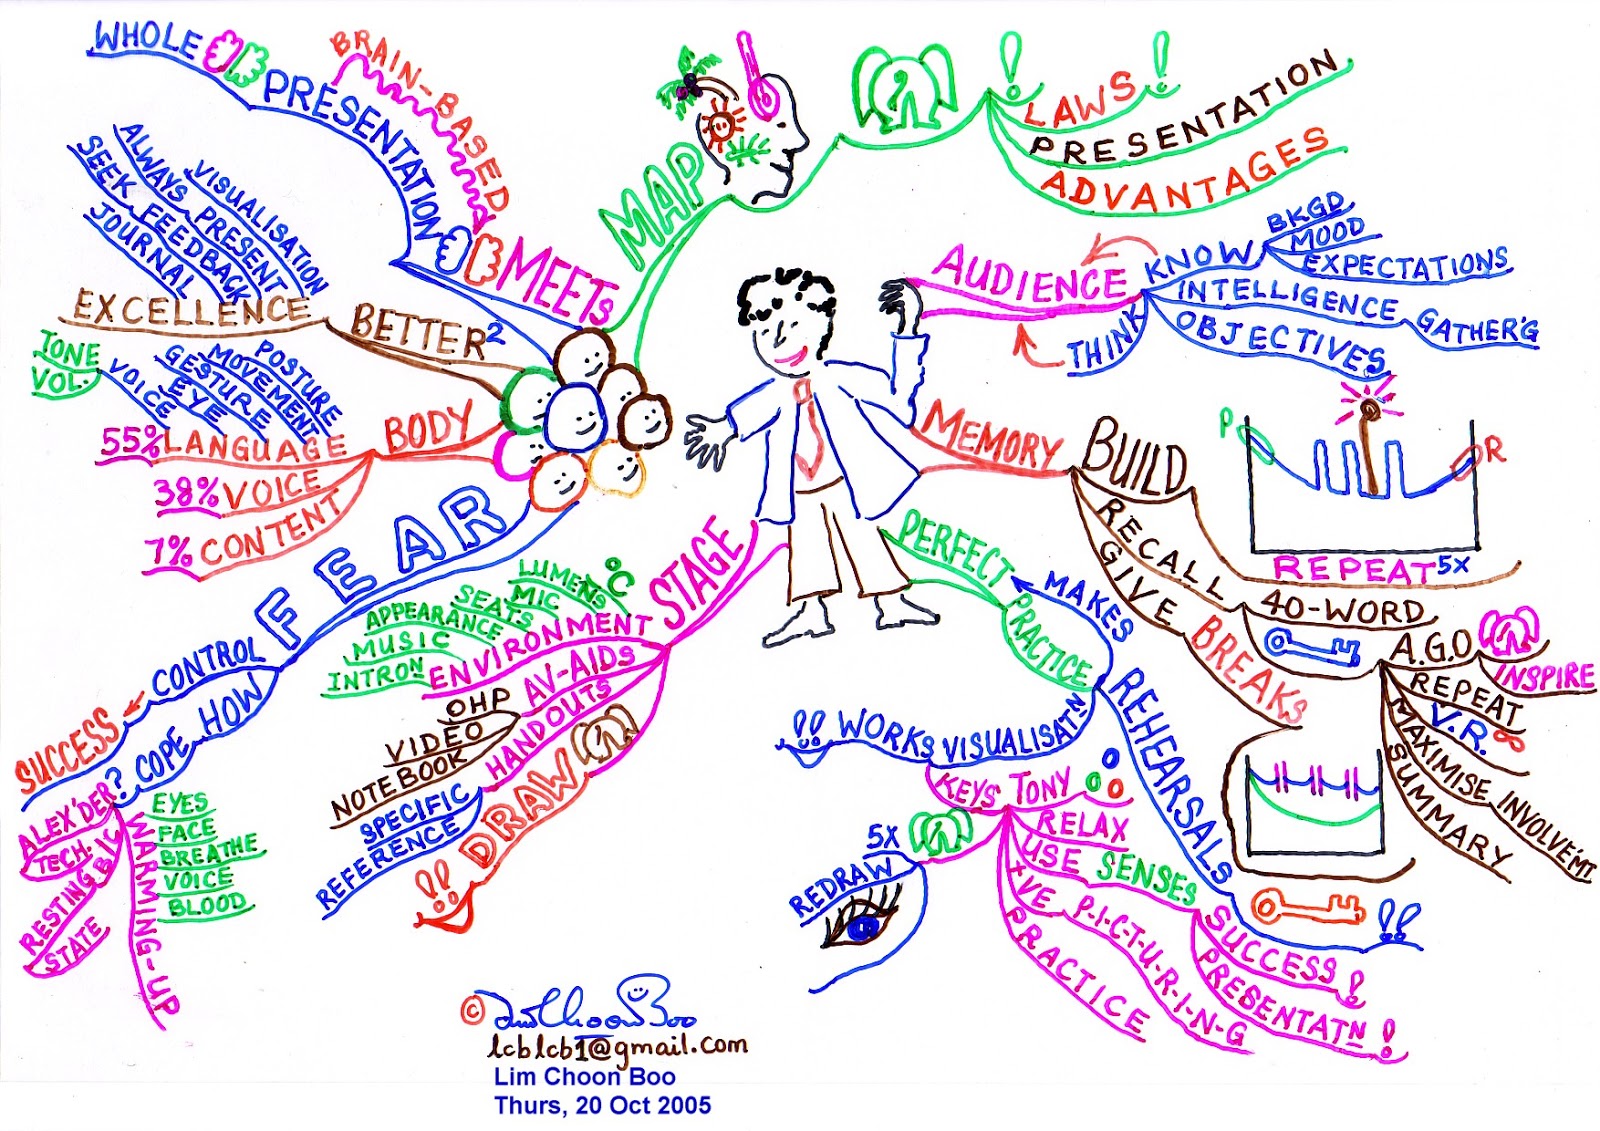 WHOLE
PRESENTATION
BRAIN-BASED
MEETS
MAP
LAWS
PRESENTATION
ADVANTAGES
VISUALISATION
ALWAYS PRESENT
SEEK FEEDBACK
JOURNAL
EXCELLENCE
BETTER²
AUDIENCE
KNOW
BKGD
MOOD
EXPECTATIONS
INTELLIGENCE GATHER'G
OBJECTIVES
THINK
TONE
VOL.
VOICE
POSTURE
MOVEMENT
GESTURE
EYE
BODY
55% LANGUAGE
38% VOICE
7% CONTENT
MEMORY
BUILD
P
R
REPEAT 5X
RECALL
40-WORD
A.G.O
INSPIRE
REPEAT
V.R. ∞
MAXIMISE INVOLVEM'T
SUMMARY
GIVE BREAKS
FEAR
CONTROL
SUCCESS
HOW
COPE
?
ALEX'DER
TECH.
RESTING
STATE
WARMING-UP
EYES
FACE
BREATHE
VOICE
BLOOD
STAGE
°C
LUMENS
MIC
SEATS
APPEARANCE
MUSIC
INTROᴺ
ENVIRONMENT
AV-AIDS
OHP
VIDEO
NOTEBOOK
HANDOUTS
SPECIFIC
REFERENCE
DRAW
!!
PERFECT
PRACTICE
MAKES
REHEARSALS
!!
VISUALISATᴺ
WORKS
!!
KEYS
TONY
RELAX
USE SENSES
+VE P-I-C-T-U-R-I-N-G
SUCCESS!
PRESENTATᴺ!
PRACTICE
5X
REDRAW
© Lim Choon Boo
lcblcb1@gmail.com
Lim Choon Boo
Thurs, 20 Oct 2005